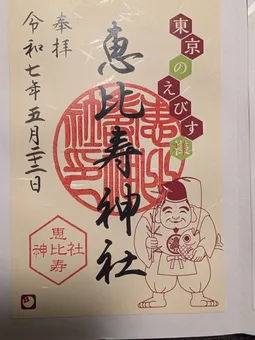 東京のえびす様
奉拝
恵比寿神社
令和七年五月二十二日
恵比寿
神社